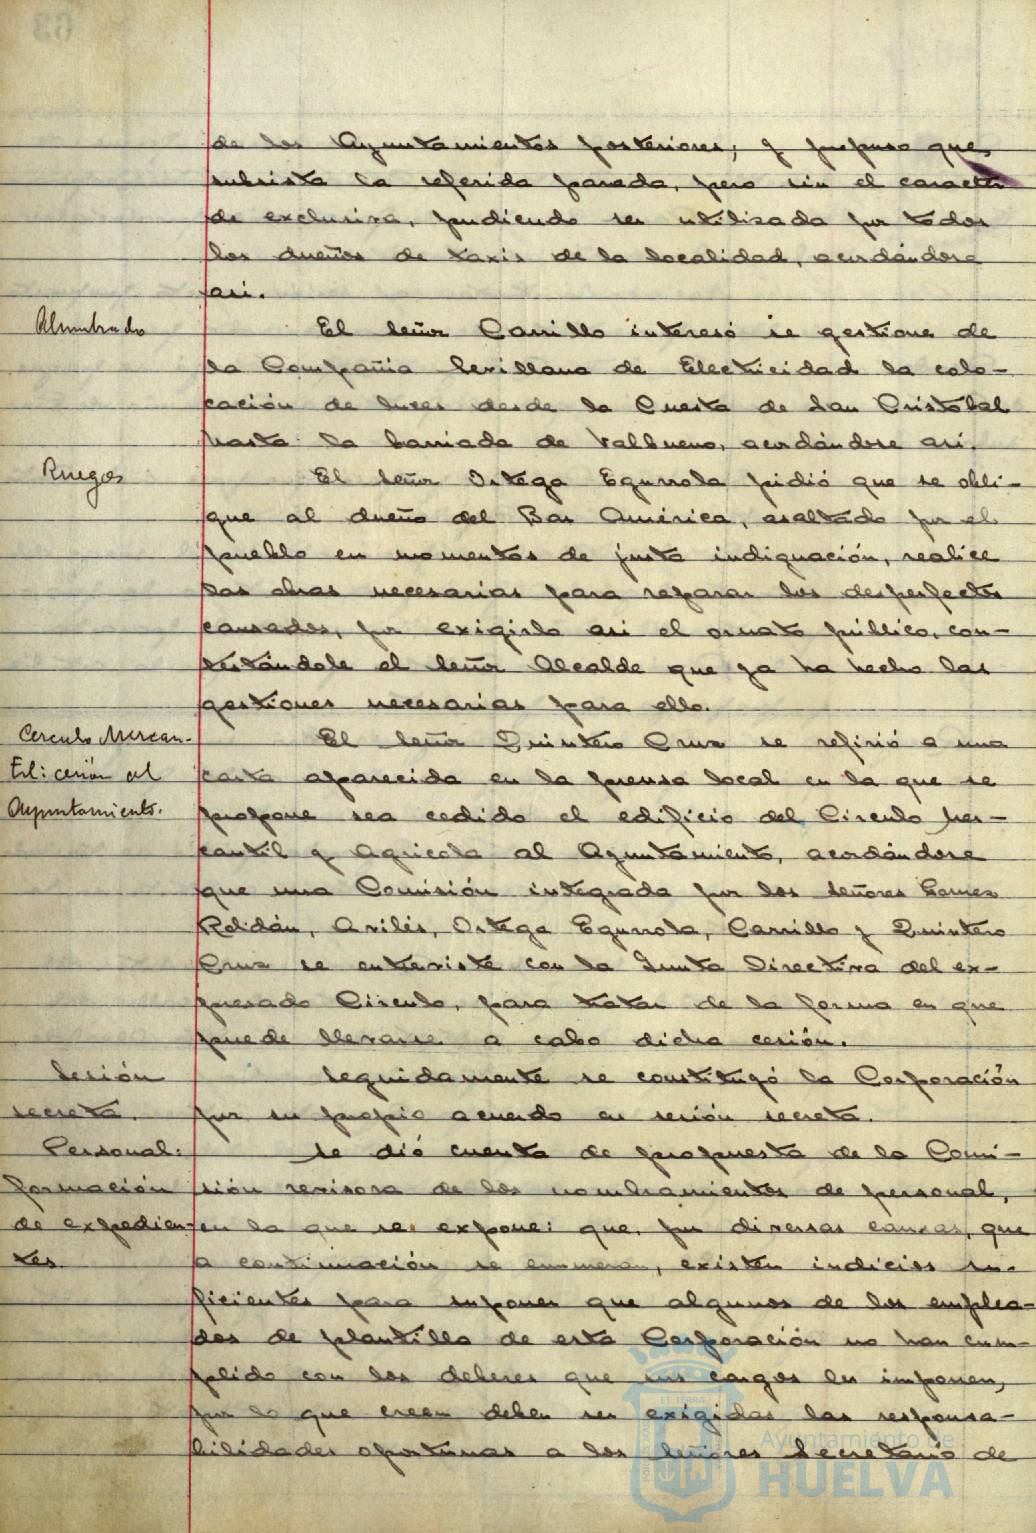 63
de los Ayuntamientos posteriores, y propuso que,
subsista la referida parada, pero sin el caracter
de exclusiva, pudiendo ser utilizada por todos
los dueños de taxis de la localidad, acordándose
asi.
Alumbrado
El Señor Carrillo interesó se gestione de
la Compañia Sevillana de Electricidad la colo-
cación de luces desde la Cuesta de San Cristobal
hasta la barriada de Valbueno, acordándose asi.
Ruegos
El Señor Ortega Egurrola pidió que se obli-
gue al dueño del Bar América, asaltado por el
pueblo en momentos de justa indignación, realice
las obras necesarias para reparar los desperfectos
causados, por exigirlo asi el ornato público, con-
testándole el Señor Alcalde que ya ha hecho las
gestiones necesarias para ello.
Circulo Mercan-
til: cesión al
Ayuntamiento.
El Señor Quintero Cruz se refirió a una
carta aparecida en la prensa local en la que se
propone sea cedido el edificio del Circulo Mer-
cantil y Agricola al Ayuntamiento, acordándose
que una Comisión integrada por los Señores Gomez
Roldán, Avilés, Ortega Egurrola, Carrillo y Quintero
Cruz se entreviste con la Junta Directiva del ex-
presado Circulo, para tratar de la forma en que
puede llevarse a cabo dicha cesión.
Sesión
secreta.
Seguidamente se constituyó la Corporación
por su propio acuerdo en sesión secreta.
Personal:
formación
de expedien-
tes
Se dió cuenta de propuesta de la Comi-
sión revisora de los nombramientos de personal,
en la que se expone: que, por diversas causas, que
a continuación se enumeran, existen indicios su-
ficientes para suponer que algunos de los emplea-
dos de plantilla de esta Corporación no han cum-
plido con los deberes que sus cargos les imponen,
por lo que creen deben ser exigidas las responsa-
bilidades oportunas a los Señores Secretario de
Ayuntamiento de
HUELVA